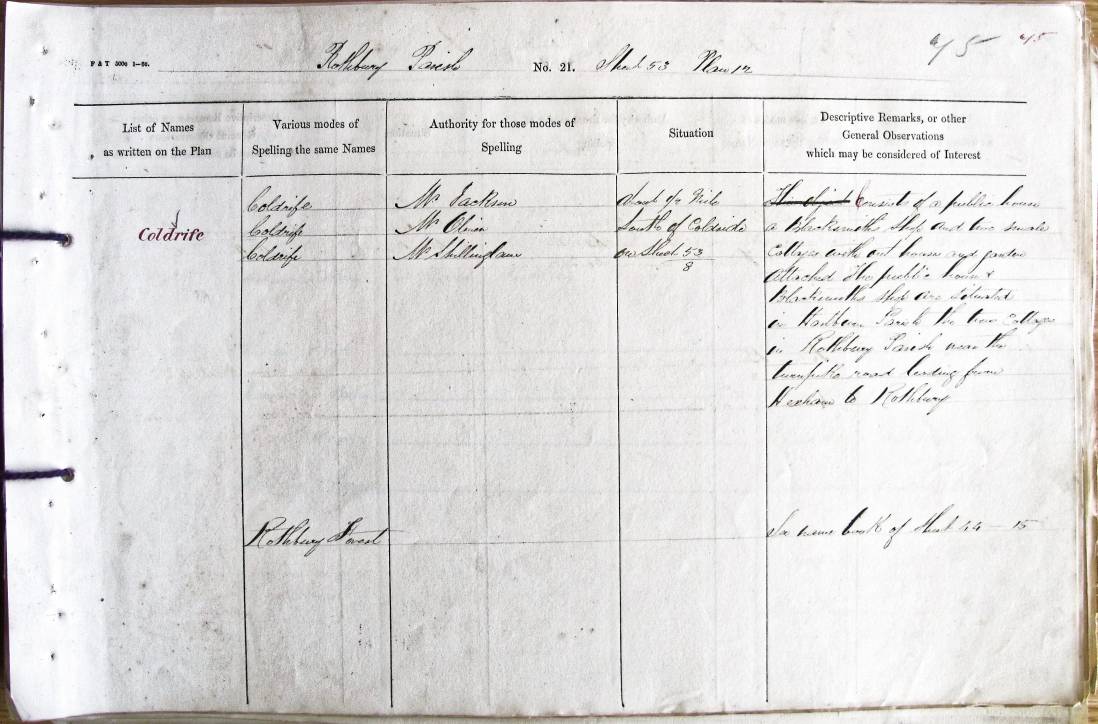 45 45
P & T 5000 1-60. Rothbury Parish No. 21. Sheet 53 Plan 12
List of Names
as written on the Plan
Various modes of
Spelling the same Names
Authority for those modes of
Spelling
Situation
Descriptive Remarks, or other
General Observations
which may be considered of Interest
Coldrife
Coldrife
Coldrife
Coldrife
Mr Jackson
Mr Oliver
Mr Shillinglaw
about ½ Mile
South of Coldside
on Sheet 53
8
The object Consists of a public house
a Blacksmiths Shop and two small
Cottages with out house and garden
attached The public house &
Blacksmiths shop are Situated
in Hartburn Parish the two Cottages
in Rothbury Parish near the
turnpike road leading from
Hexham to Rothbury
Rothbury Forest
See name book of Sheet 44 - 15